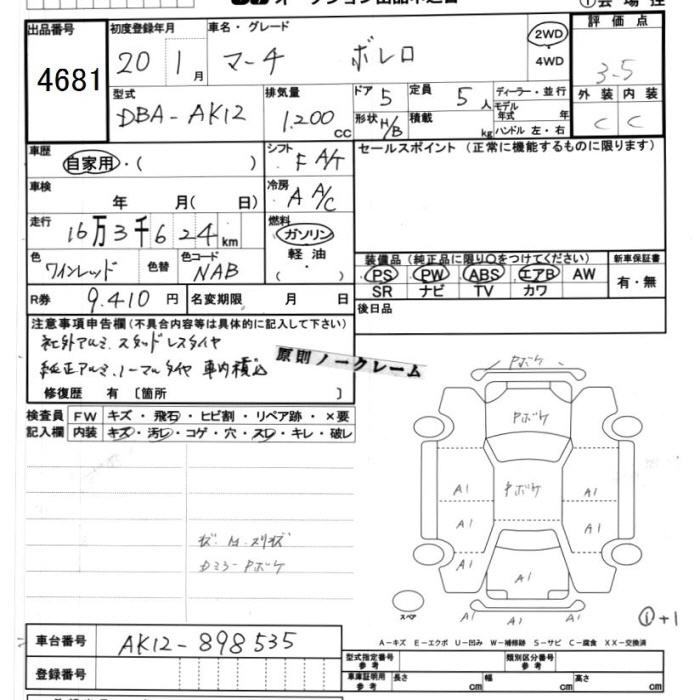 出品番号
4681
初度登録年月
20年1月
車名・グレード
マーチ ボレロ
2WD
・
4WD
評価点
3-5
外装 内装
C C
型式
DBA-AK12
排気量
1.200cc
ドア 5
形状 H/B
定員 5人
積載 kg
ディーラー・並行
モデル年式 年
ハンドル 左・右
車歴
自家用・( )
シフト
F A/T
セールスポイント (正常に機能するものに限ります)
車検
年 月( 日)
冷房
A A/C
走行
16万3千624km
燃料
ガソリン
軽油
( ・ )
色
ワインレッド
色替
色コード
NAB
装備品 (純正品に限り○をつけてください)
PS PW ABS エアB AW
SR ナビ TV カワ
新車保証書
有・無
R券 9.410円
名変期限 月 日
後日品
注意事項申告欄 (不具合内容等は具体的に記入して下さい)
社外アルミ.スタッドレスタイヤ
純正アルミ.ノーマルタイヤ 車内積込
修復歴 有 〔箇所 〕
原則ノークレーム
検査員記入欄
FW キズ・飛石・ヒビ割・リペア跡・×要
内装 キズ・汚レ・コゲ・穴・スレ・キレ・破レ
Pボケ
Pボケ
Pボケ
A1 A1
A1 A1
A1 A1
A1
A1 A1
スペア
①+1
A-キズ E-エクボ U-凹み W-補修跡 S-サビ C-腐食 XX-交換済
車台番号
AK12-898535
登録番号
型式指定番号 参考
類別区分番号 参考
車庫証明用 参考
長さ cm
幅 cm
高さ cm